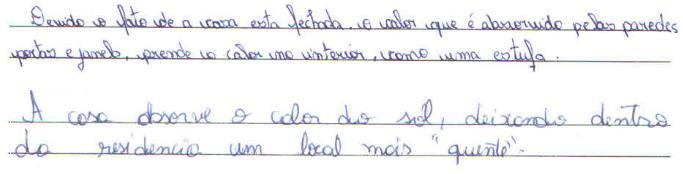 Devido o fato de a casa esta fechada, o calor que é absorvido pelas paredes
portas e janela, prende o calor no interior, como uma estufa.
A casa observe o calor do sol, deixando dentro
da residencia um local mais "quente".